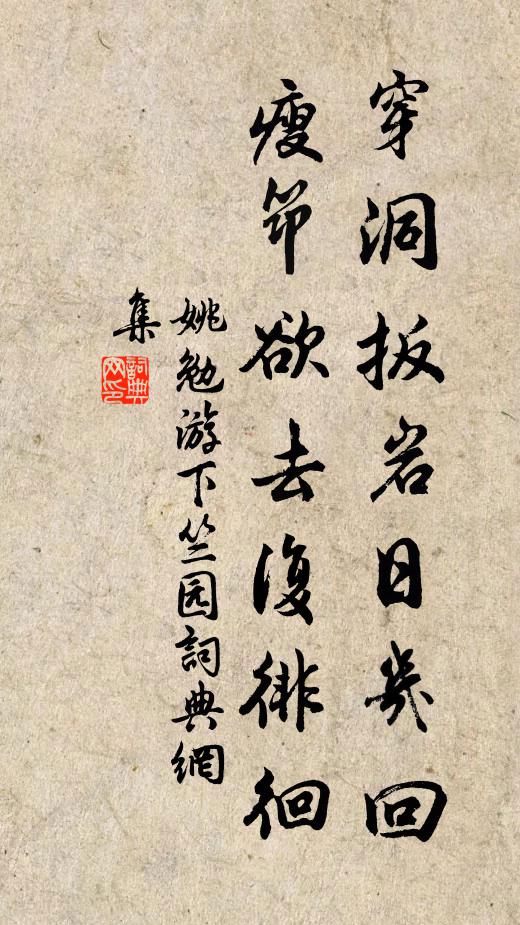 穿洞扳岩日幾回
瘦筇欲去復徘徊
姚勉游下竺园詞典網
集
詞典
网印